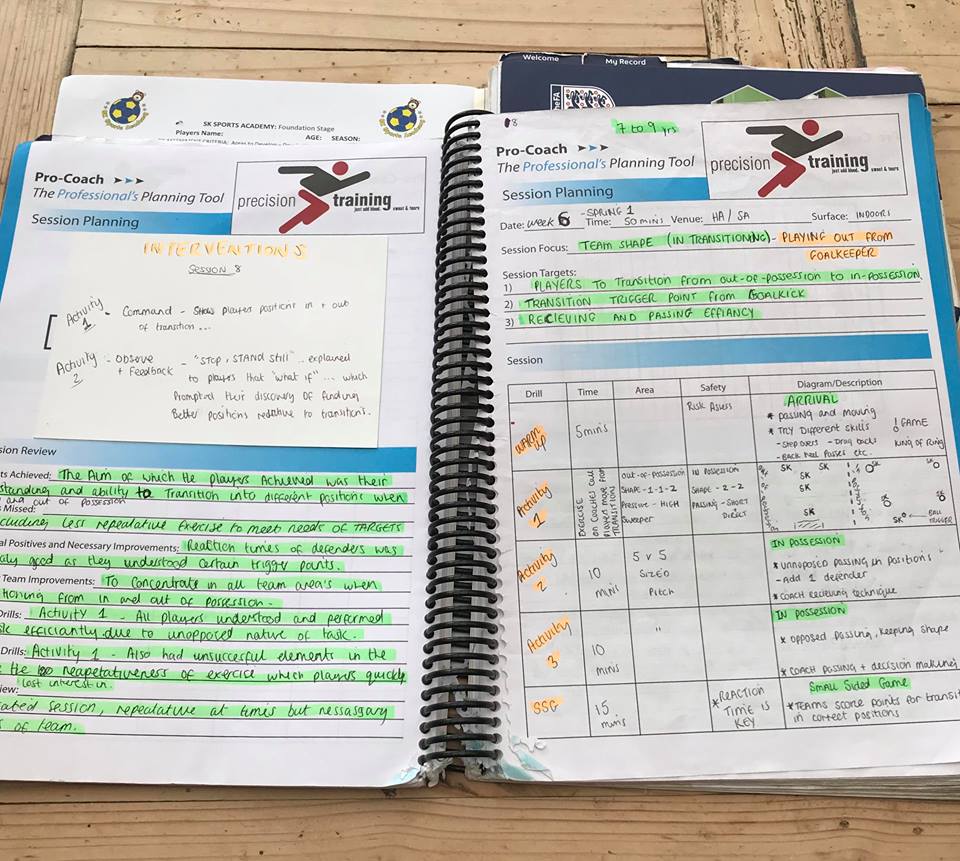 SK SPORTS ACADEMY: Foundation Stage
Players Name: AGE: SEASON:
Pro-Coach
The Professional's Planning Tool
Session Planning
precision training
just add blood, sweat & tears
INTERVENTIONS
SESSION 8
Activity 1. Command - Show players positions in + out
of transition...
Activity 2 - OBSERVE + Feedback - "STOP, STAND STILL".. explained
to players that "what if"... which
prompted their discovery of finding
Better positions relative to transitions.
sion Review
ts Achieved: The Aim of which the players Achieved was their
standing and ability to Transition into different positions when
in and out of possession
Missed:
cluding less repeatative Exercise to meet needs of TARGETS
al Positives and Necessary Improvements: Reaction times of defenders was
ally good as they understood certain trigger points.
Team Improvements: To concentrate in all team area's when
tioning from in and out of possession.
Drills: Activity 1 - All players understood and performed
sk efficiantly due to unopposed nature of task.
Drills: Activity 1 - Also had unsuccesful elements in the
the neapetativeness of exercise which players quickly
lost interest in.
iew:
ated session, repeatative at times but nessasgary
s of team.
Welcome My Record
the FA
8
7 to 9 yrs
Pro-Coach
The Professional's Planning Tool
Session Planning
precision training
just add blood, sweat & tears
Date: week 6 - SPRING 1 Time: 50 mins Venue: HA / SA Surface: INDOORS
Session Focus: TEAM SHAPE (IN TRANSITIONING) - PLAYING OUT FROM
GOALKEEPER
Session Targets:
1) PLAYERS To Transition from out-of-possession to in-possession.
2) TRANSITION TRIGGER POINT from GOALKICK
3) RECIEVING AND PASSING EFFIANCY
Session
Drill Time Area Safety Diagram/Description
WARM UP 5mins Risk Assess ARRIVAL
* passing and moving
* TRY Different skills
- Step overs - Drag backs
- Back heel passes etc.
1 GAME
KING OF RING
Activity 1
EXERCISE on COACHES CALL PLAYER MOVE FOR TRANSITIONS
OUT-OF-POSSESSION
SHAPE - 1-1-2
PRESSURE - HIGH
Sweeper
IN POSSESSION
SHAPE - 2-2
PASSING - SHORT
DIRECT
SK SK SK
SK
SK
BALL TRIGGER
Activity 2 10 mins 5 v 5
SIZED
Pitch
IN POSSESSION
* UNNOPOSED passing in positions
- Add 1 defender
* COACH RECIEVING TECHNIQUE
Activity 3 10 mins "
IN POSSESSION
* OPPOSED PASSING, KEEPING SHAPE
* COACH PASSING + DECISION MAKING
SSG 15 mins * REACTION TIME IS KEY
Small Sided Game
* TEAMS SCORE POINTS for transit
in correct positions